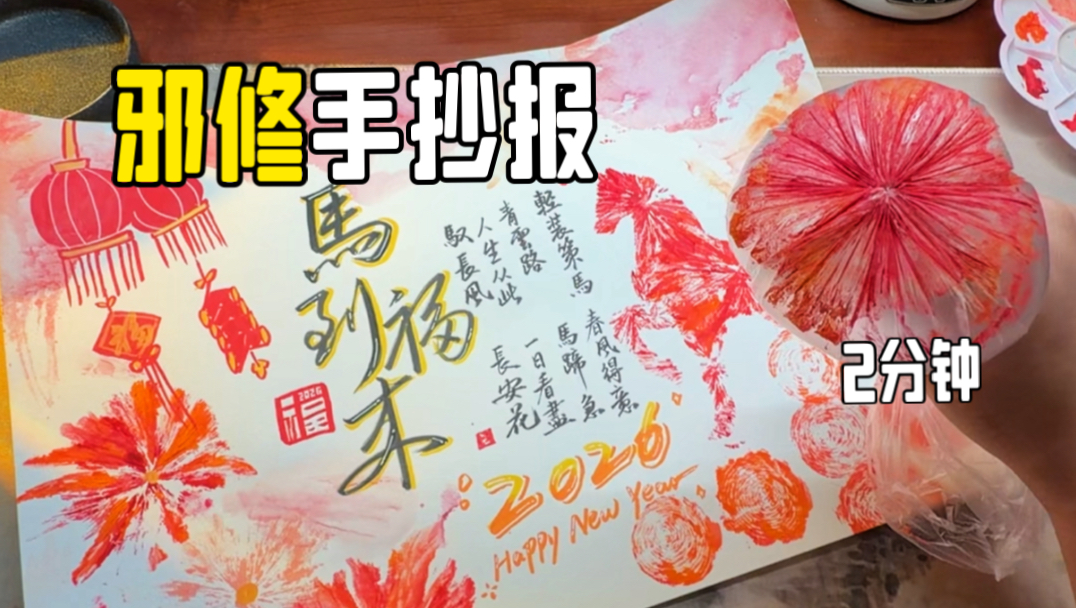 邪修手抄报
2分钟
馬到福来
輕装策馬
青雲路
人生从此
馭長風
春風得意
馬蹄急
一日看盡
長安花
2026
福
2026
Happy New Year